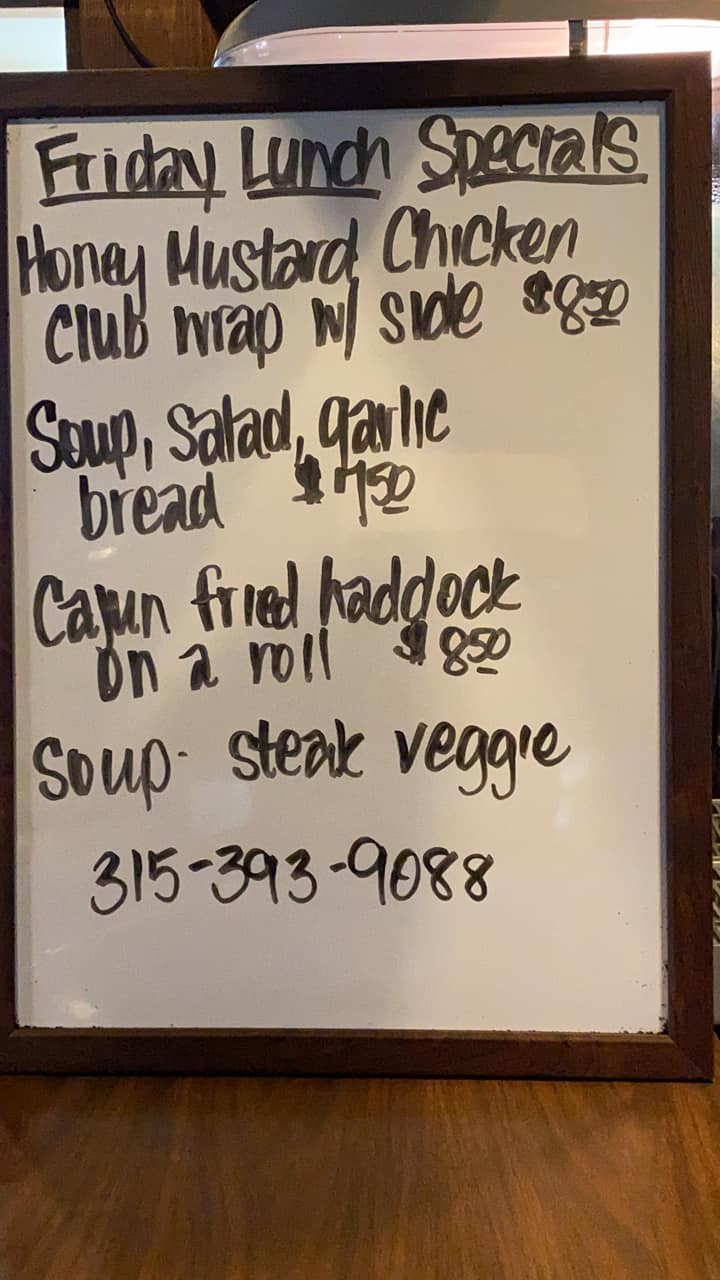 Friday Lunch Specials
Honey Mustard Chicken
Club wrap w/ side $850
Soup, Salad, garlic
bread $750
Cajun fried haddock
on a roll $850
Soup- steak veggie
315-393-9088